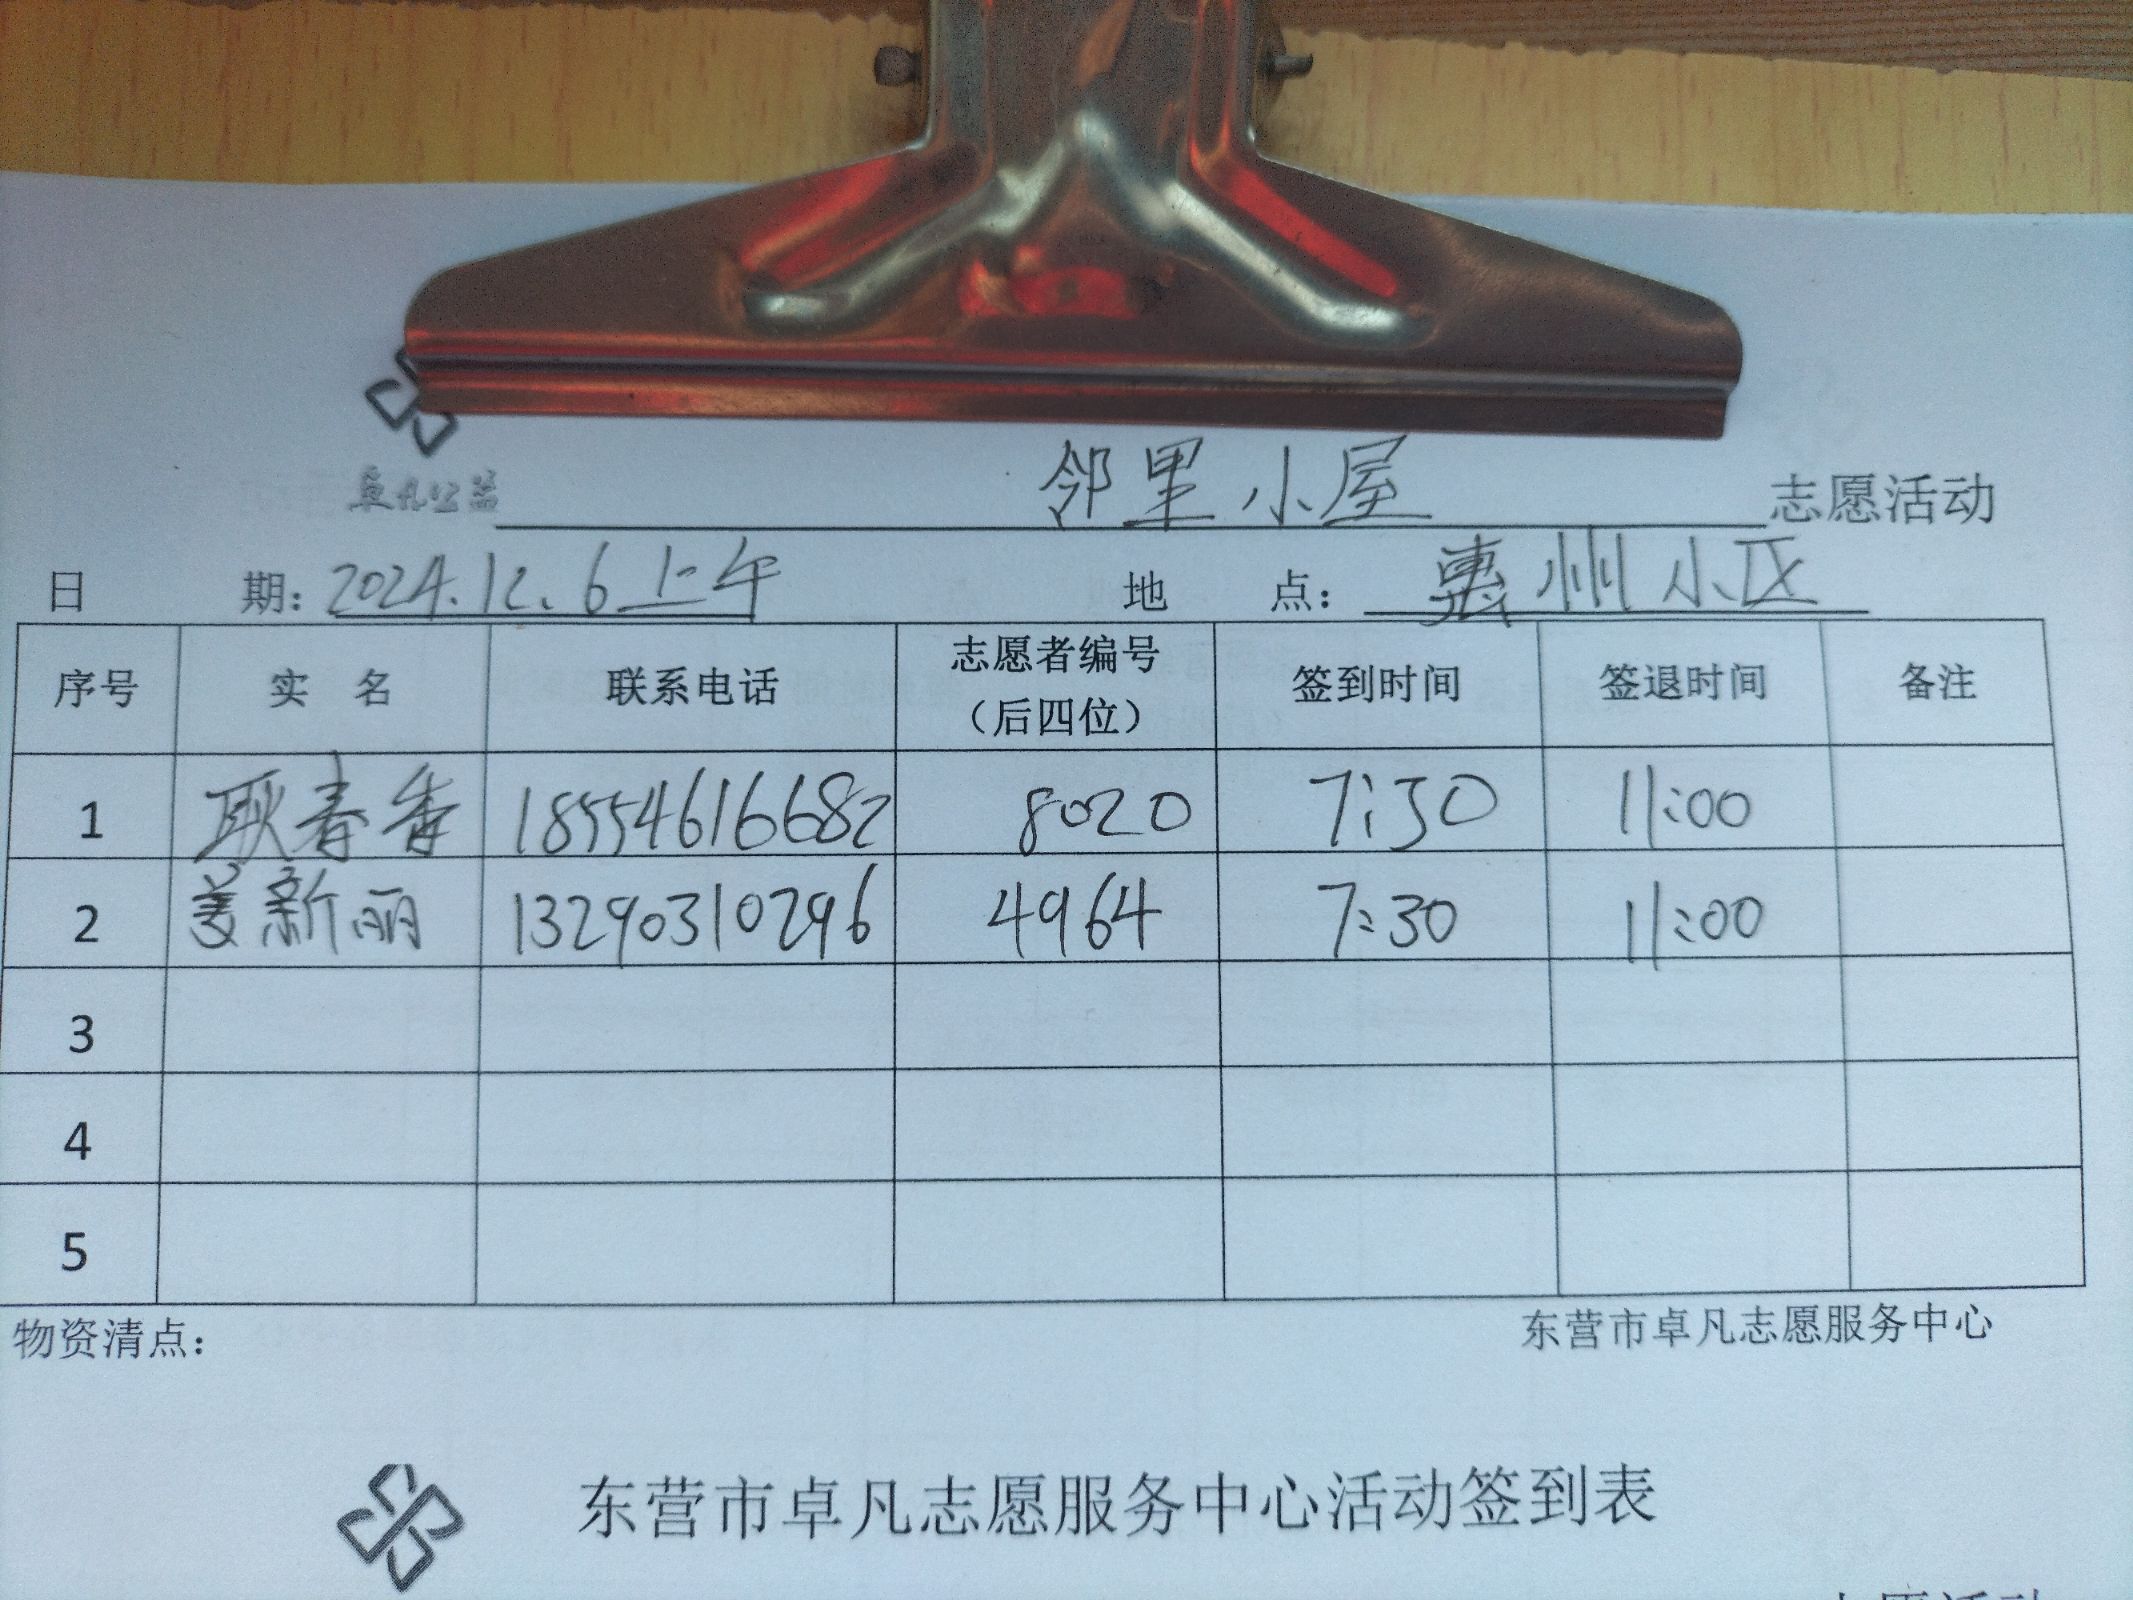 卓凡公益 邻里小屋 志愿活动
日 期：2024.12.6上午 地 点：惠州小区
序号 实 名 联系电话 志愿者编号（后四位） 签到时间 签退时间 备注
1 耿春香 18554616682 8020 7:30 11:00
2 姜新丽 13290310296 4964 7:30 11:00
3
4
5
物资清点： 东营市卓凡志愿服务中心
东营市卓凡志愿服务中心活动签到表
志愿活动